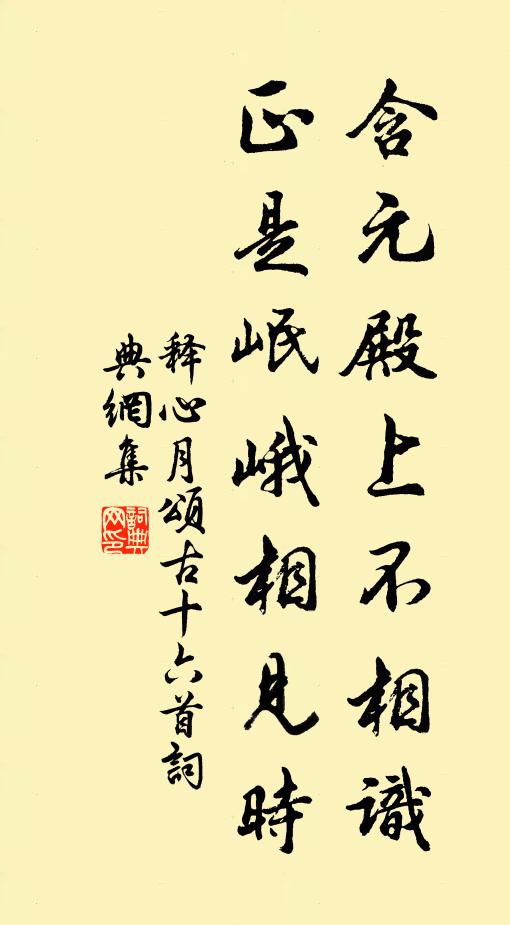 含元殿上不相識
正是岷峨相見時
释心月頌古十六首詞
典網集
詞典
网印